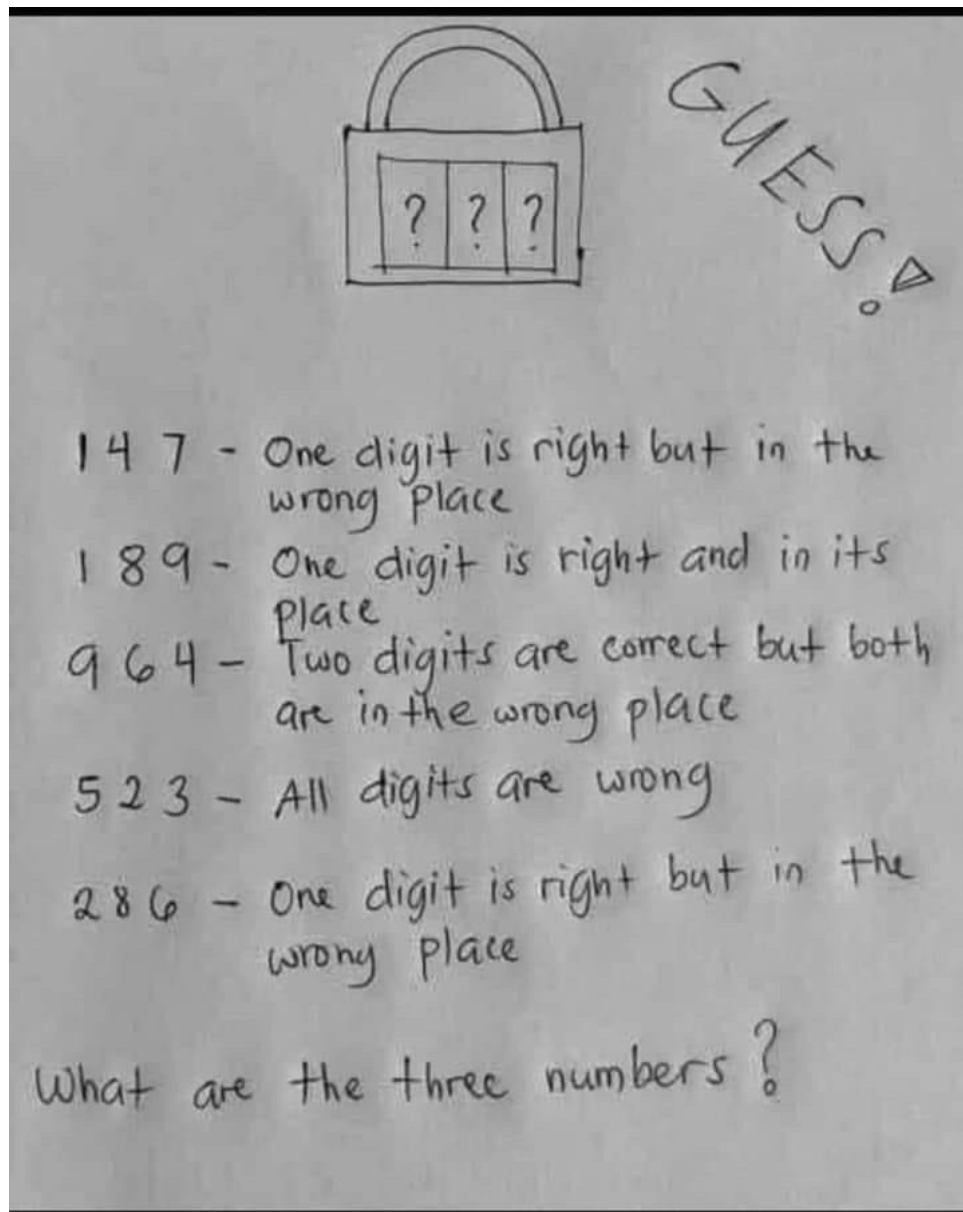 GUESS!
? ? ?
1 4 7 - One digit is right but in the
wrong place
1 8 9 - One digit is right and in its
place
9 6 4 - Two digits are correct but both
are in the wrong place
5 2 3 - All digits are wrong
2 8 6 - One digit is right but in the
wrong place
What are the three numbers?